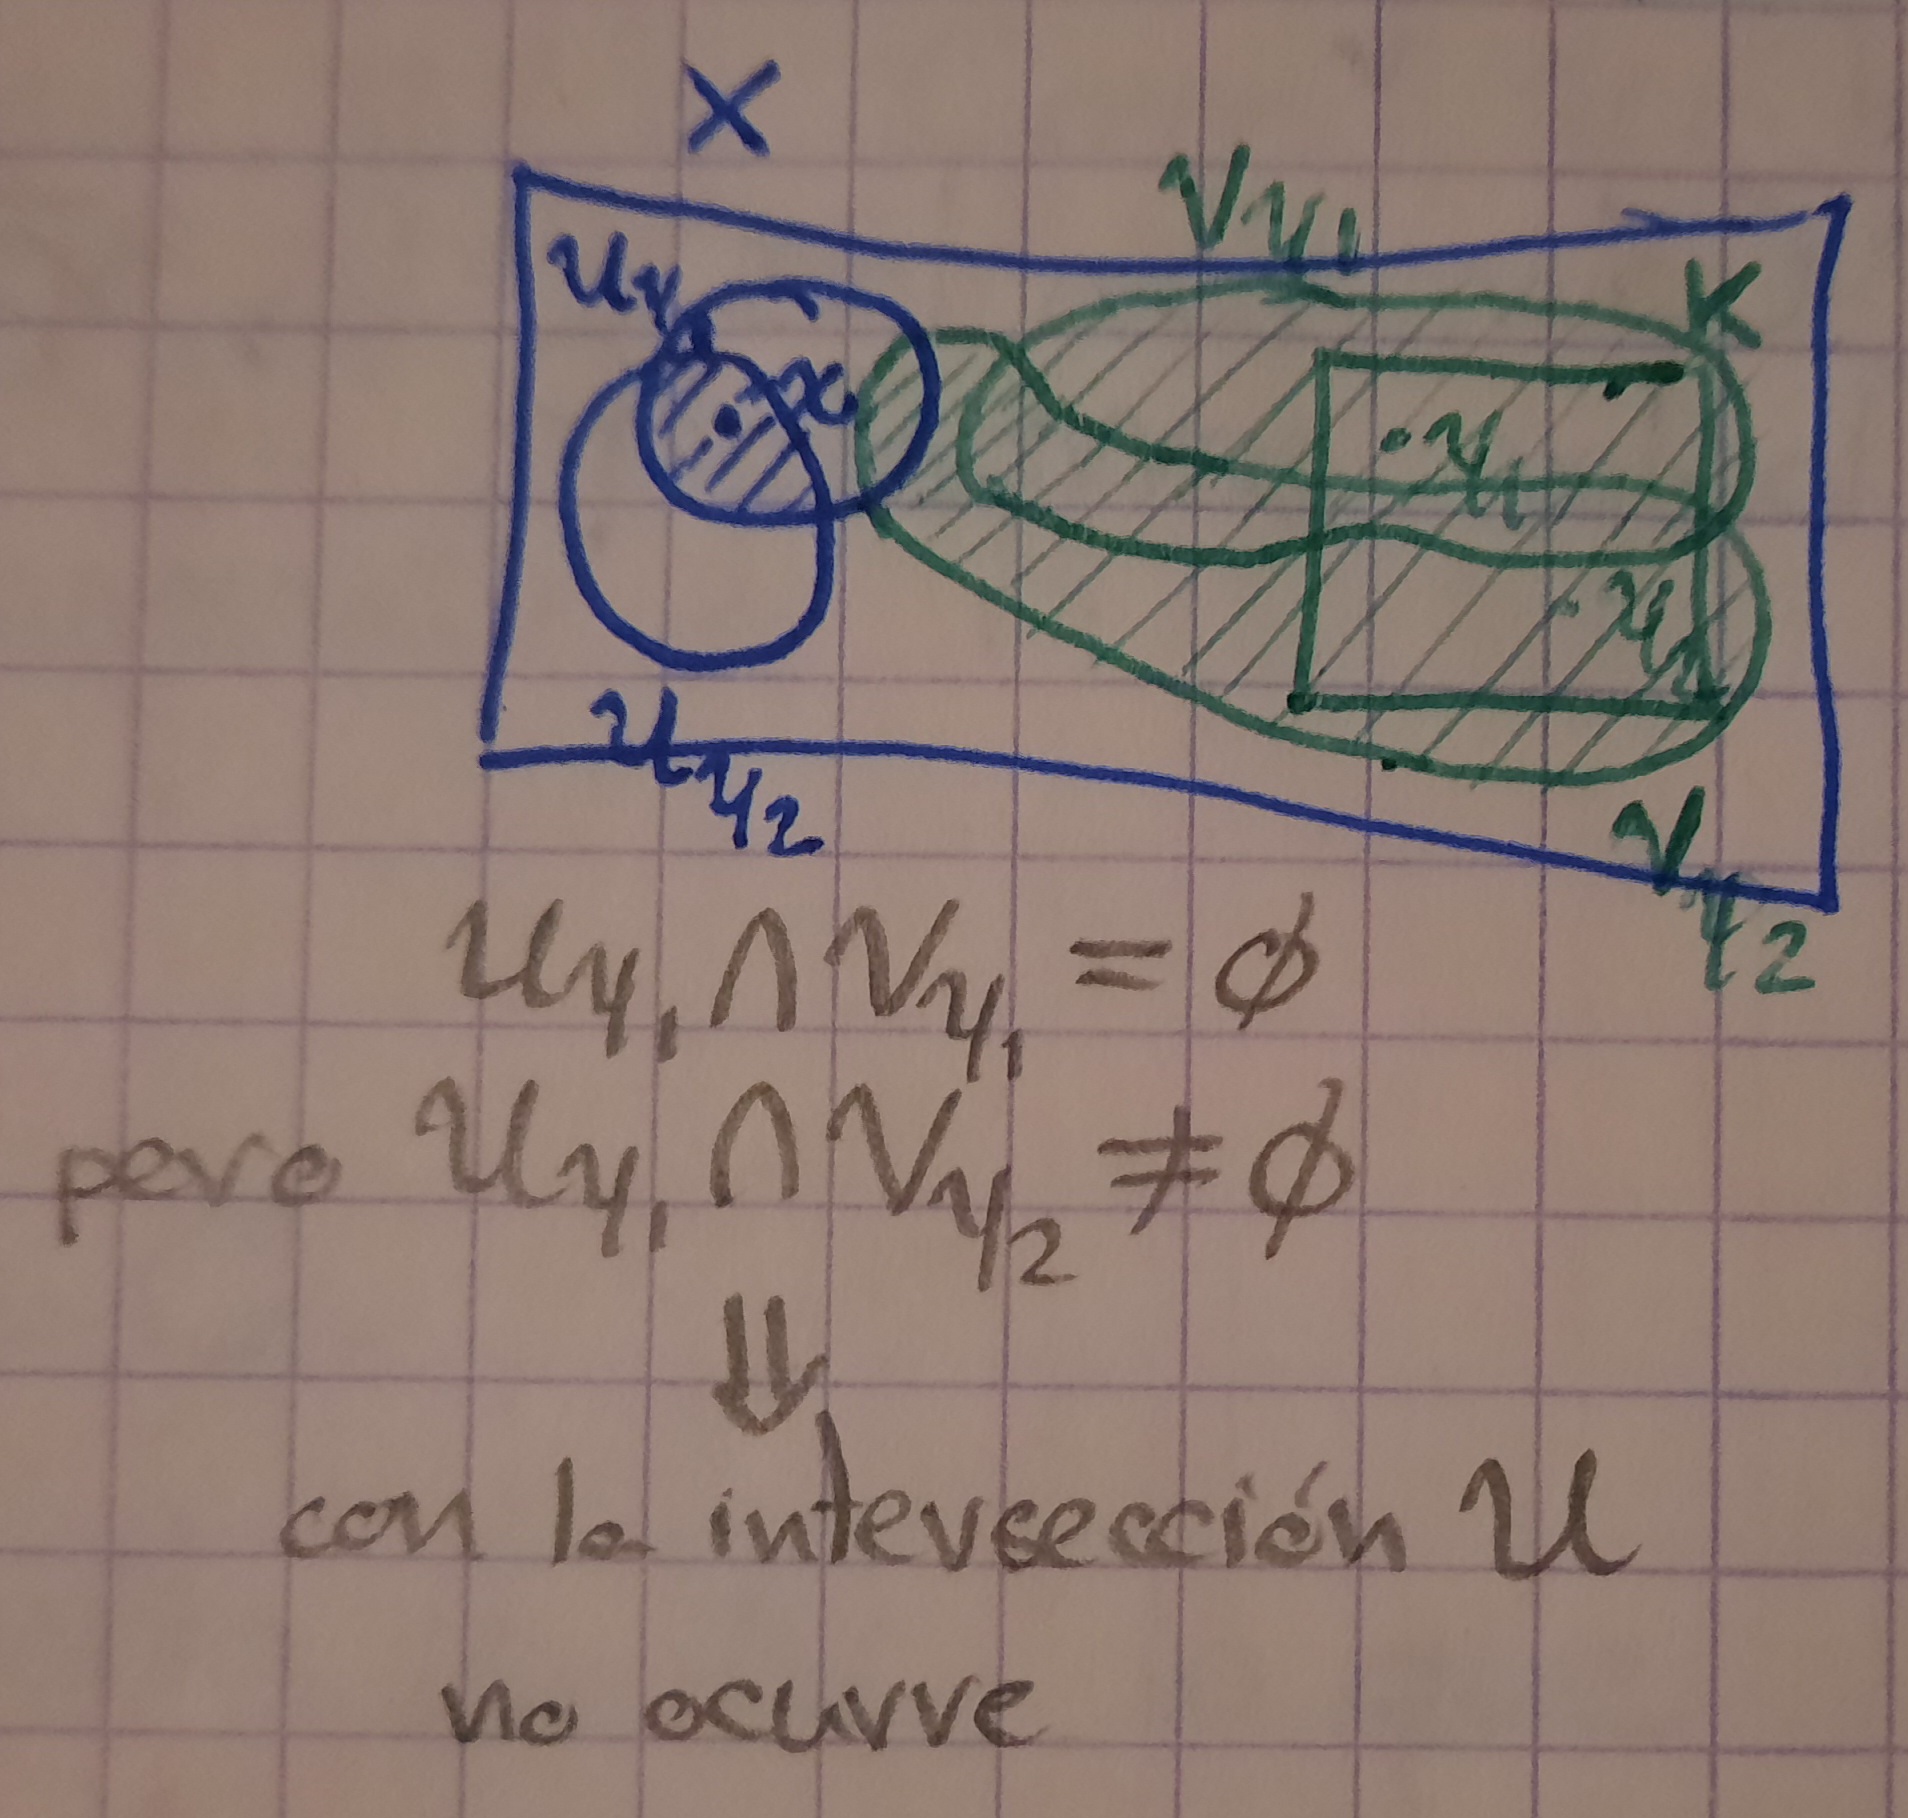 X
V_{y_1}
U_{y_1}
K
x
y_1
y_2
U_{y_2}
V_{y_2}
U_{y_1} ∩ V_{y_1} = ∅
pero U_{y_1} ∩ V_{y_2} ≠ ∅
⇓
con la intersección U
no ocurre